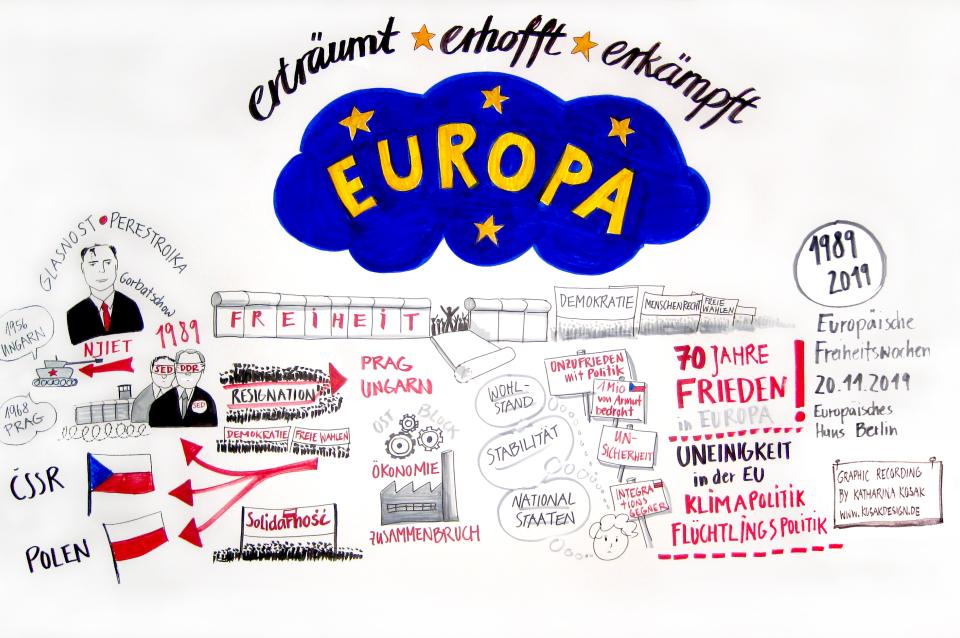 erträumt ★ erhofft ★ erkämpft
EUROPA
GLASNOST • PERESTROIKA
Gorbatschow
1956
UNGARN
NJIET
1989
1968
PRAG
SED DDR
SED
FREIHEIT
RESIGNATION
DEMOKRATIE
FREIE WAHLEN
PRAG
UNGARN
ČSSR
POLEN
Solidarność
OST BLOCK
ÖKONOMIE
ZUSAMMENBRUCH
DEMOKRATIE
MENSCHENRECHT
FREIE
WAHLEN
WOHL-
STAND
STABILITÄT
NATIONAL
STAATEN
UNZUFRIEDEN
mit Politik
1 Mio
von Armut
bedroht
UN-
SICHERHEIT
INTEGRA
TIONS
GEGNER
70 JAHRE
FRIEDEN!
in EUROPA
UNEINIGKEIT
in der EU
KLIMAPOLITIK
FLÜCHTLINGSPOLITIK
1989
2019
Europäische
Freiheitswochen
20.11.2019
Europäisches
Haus Berlin
GRAPHIC RECORDING
BY KATHARINA KOSAK
WWW.KOSAKDESIGN.DE